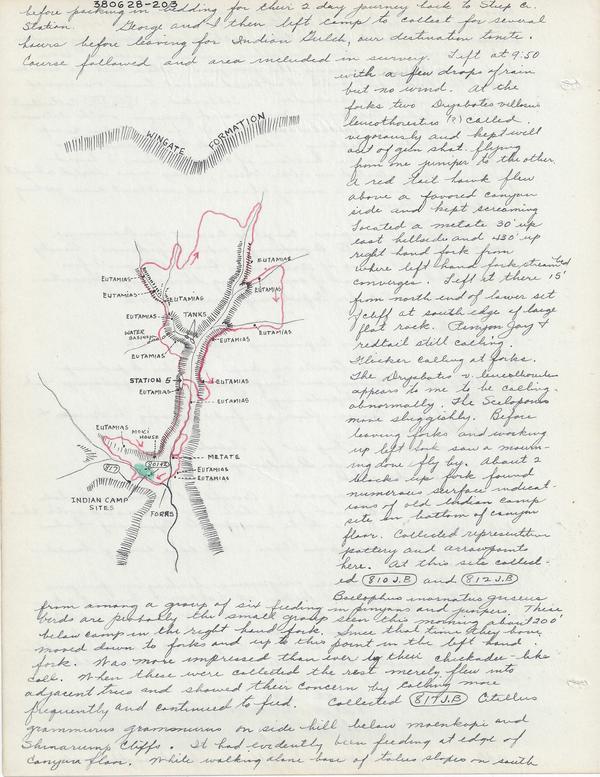 380628-203
before packing in bedding for their 2 day journey back to Step Cr.
Station. George and I then left camp to collect for several
hours before leaving for Indian Gulch, our destination tonite.
Course followed and area included in survey. Left at 9:50
with a few drops of rain
but no wind. At the
forks two Dryobates villosus
leucothorectis (?) called
vigorously and kept well
out of gun shot flying
from one juniper to the other.
A red tail hawk flew
above a favored canyon
side and kept screaming
Located a metate 30' up
east hillside and 430' up
right hand fork from
where left hand fork stream bed
converges. Left at there 15'
from north end of lower set
of cliff at south edge of large
flat rock. Pinyon Jay &
redtail still calling.
Flicker calling at forks.
The Dryobates v. leucothorectis
appears to me to be calling
abnormally. The Sceloporus
more sluggishly. Before
leaving forks and working
up left fork saw a mourn-
ing dove fly by. About 2
blocks up fork found
numerous surface indicat-
ions of old Indian camp
site on bottom of canyon
floor. Collected representative
pottery and arrowpoints
here. At this site collect-
ed 810 J.B and 812 J.B
Baeolophus inornatus griseus
from among a group of six feeding in pinyons and junipers. These
birds are probably the small group seen this morning about 200'
below camp in the right hand fork. Since that time they have
moved down to forks and up to this point in the left hand
fork. Was more impressed than ever by their Chickadee-like
call. When these were collected the rest merely flew into
adjacent trees and showed their concern by calling more
frequently and continued to feed. Collected 817 J.B Citellus
grammurus grammurus on side hill below moenkopi and
Shinarump Cliffs. It had evidently been feeding at edge of
canyon floor. While walking along base of talus slopes on south
WINGATE FORMATION
EUTAMIAS
EUTAMIAS
EUTAMIAS
EUTAMIAS
EUTAMIAS
EUTAMIAS
TANKS
EUTAMIAS
WATER
EUTAMIAS
EUTAMIAS
STATION 5
EUTAMIAS
EUTAMIAS
EUTAMIAS
MOKI
HOUSE
METATE
817
EUTAMIAS
EUTAMIAS
INDIAN CAMP
SITES
FORKS